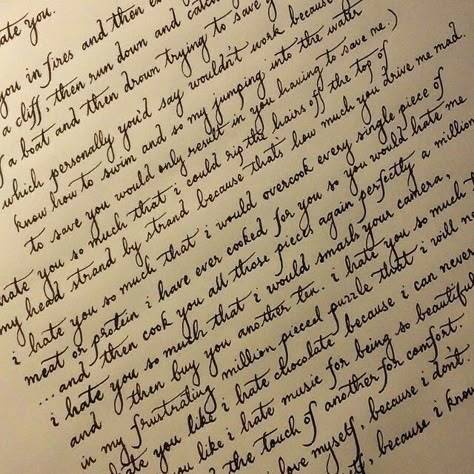 ate you.
you in fires and then e
a cliff, then run down and catch
f a boat and then drown trying to save y
which personally you'd say wouldn't work because
know how to swim and so my jumping into the water
to save you would only result in you having to save me.)
hate you so much that i could rip the hairs off the top of
my head strand by strand because that's how much you drive me mad.
i hate you so much that i would overcook every single piece of
meat or protein i have ever cooked for you so you would hate me
...and then cook you all those pieces again perfectly a million
i hate you so much that i would smash your camera,
and then buy you another ten. i hate you so much t
in my frustrating million pieced puzzle that i will n
hate you like i hate chocolate because i can never
you like i hate music for being so beautiful
the touch of another for comfort.
love myself, because i don't
because i know